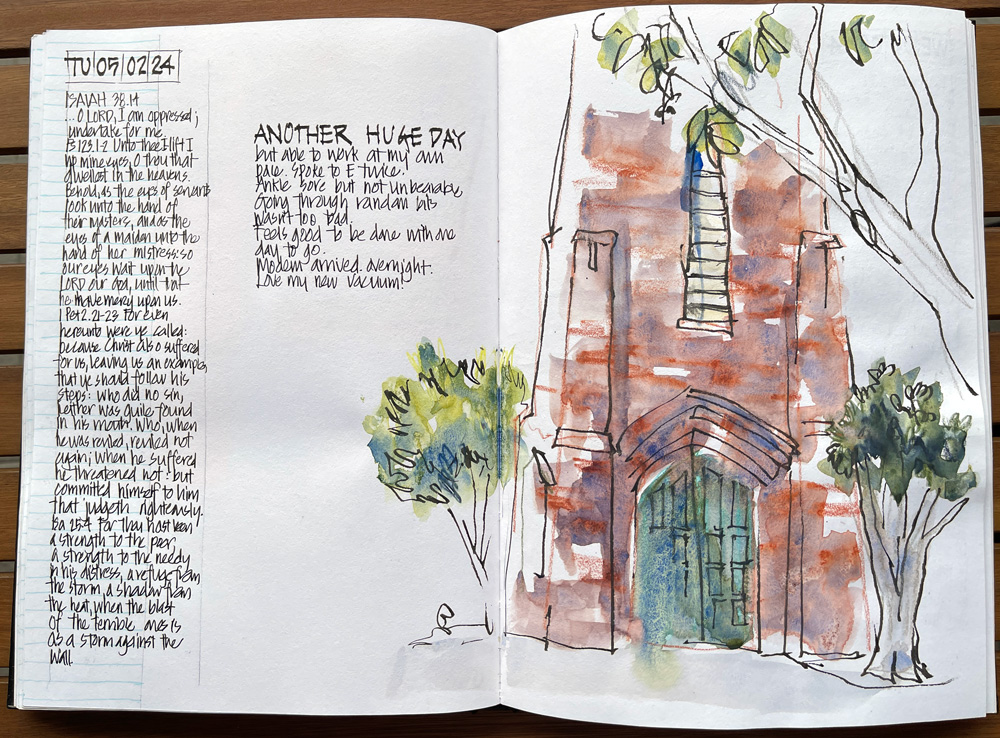 TU 05 02 24
ISAIAH 38.14
...O LORD, I am oppressed;
undertake for me.
Ps 123.1-2 Unto thee I lift I
up mine eyes, O thou that
dwellest in the heavens.
Behold, as the eyes of servants
look unto the hand of
their masters, and as the
eyes of a maiden unto the
hand of her mistress: so
our eyes wait upon the
LORD our God, until that
he have mercy upon us.
1 Pet 2.21-23 For even
hereunto were ye called:
because Christ also suffered
for us, leaving us an example,
that ye should follow his
steps: who did no sin,
neither was guile found
in his mouth. Who, when
he was reviled, reviled not
again; when he suffered
he threatened not: but
committed himself to him
that judgeth righteously.
Isa 25.4 For thou hast been
a strength to the poor,
a strength to the needy
in his distress, a refuge from
the storm, a shadow from
the heat, when the blast
of the terrible ones is
as a storm against the
wall.
ANOTHER HUGE DAY
but able to work at my own
pace. Spoke to E twice.
Ankle sore but not unbearable
Going through random bits
wasn't too bad.
Feels good to be done with one
day to go.
Modem arrived overnight.
Love my new vacuum!